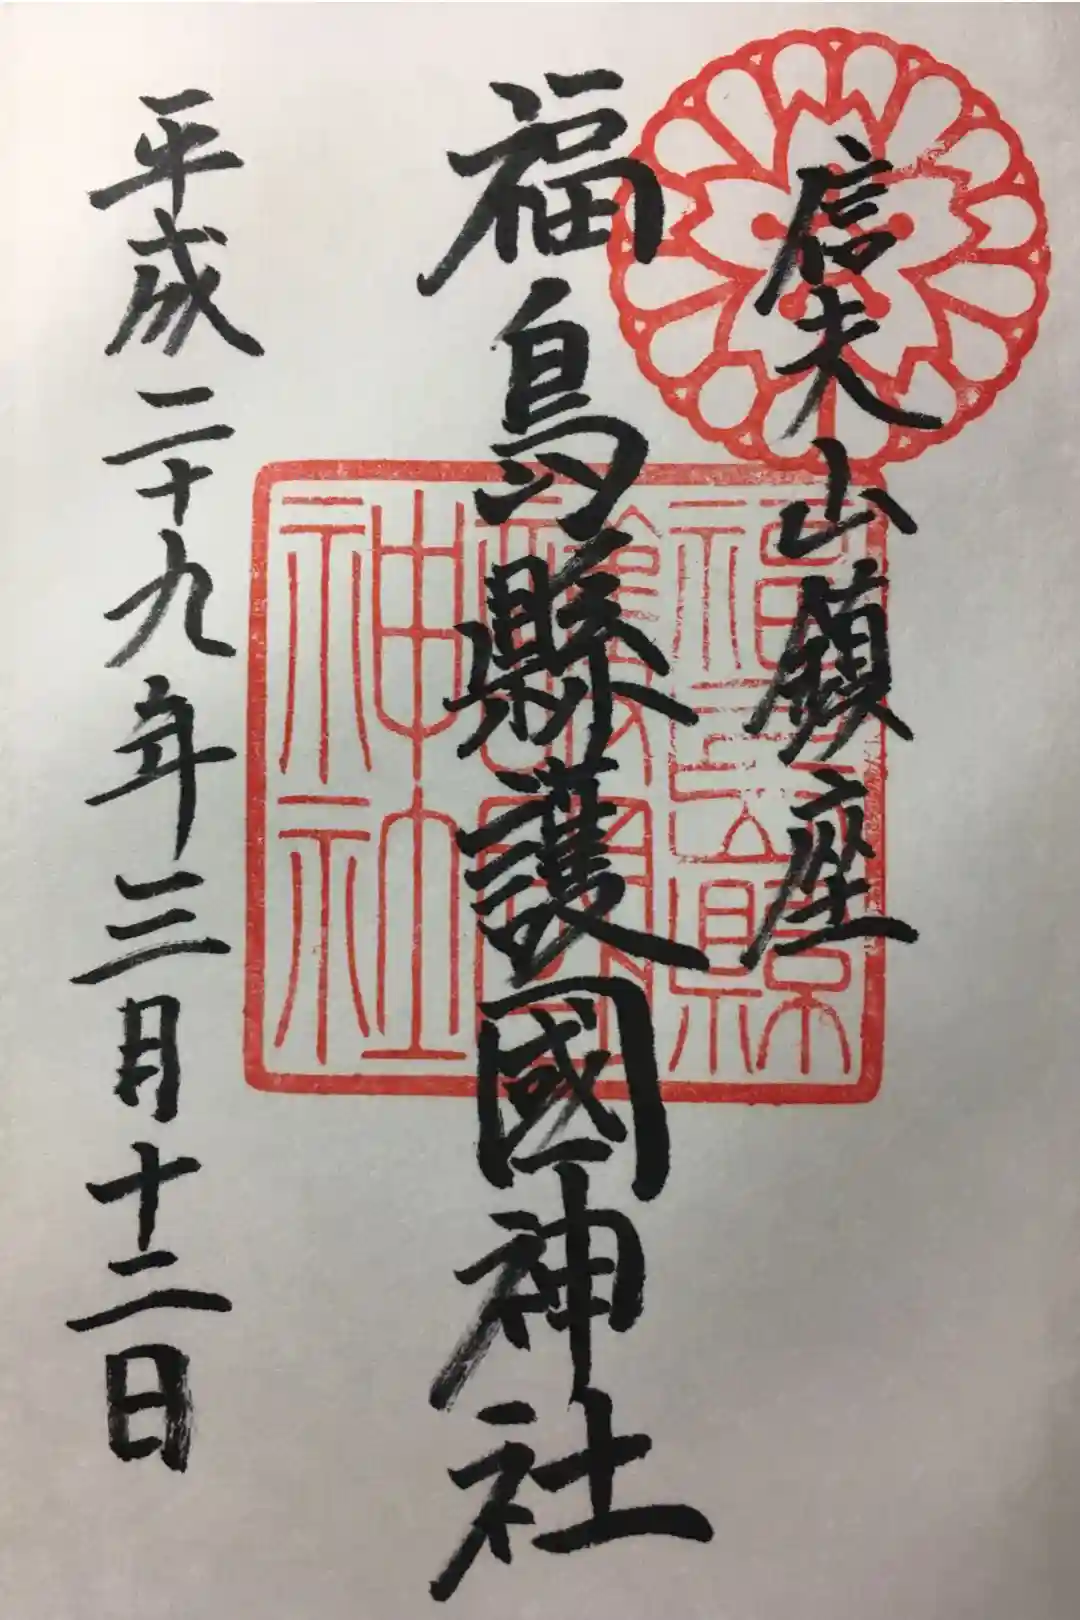 信夫山鎮座
福島縣護國神社
平成二十九年三月十二日
福島縣護國神社